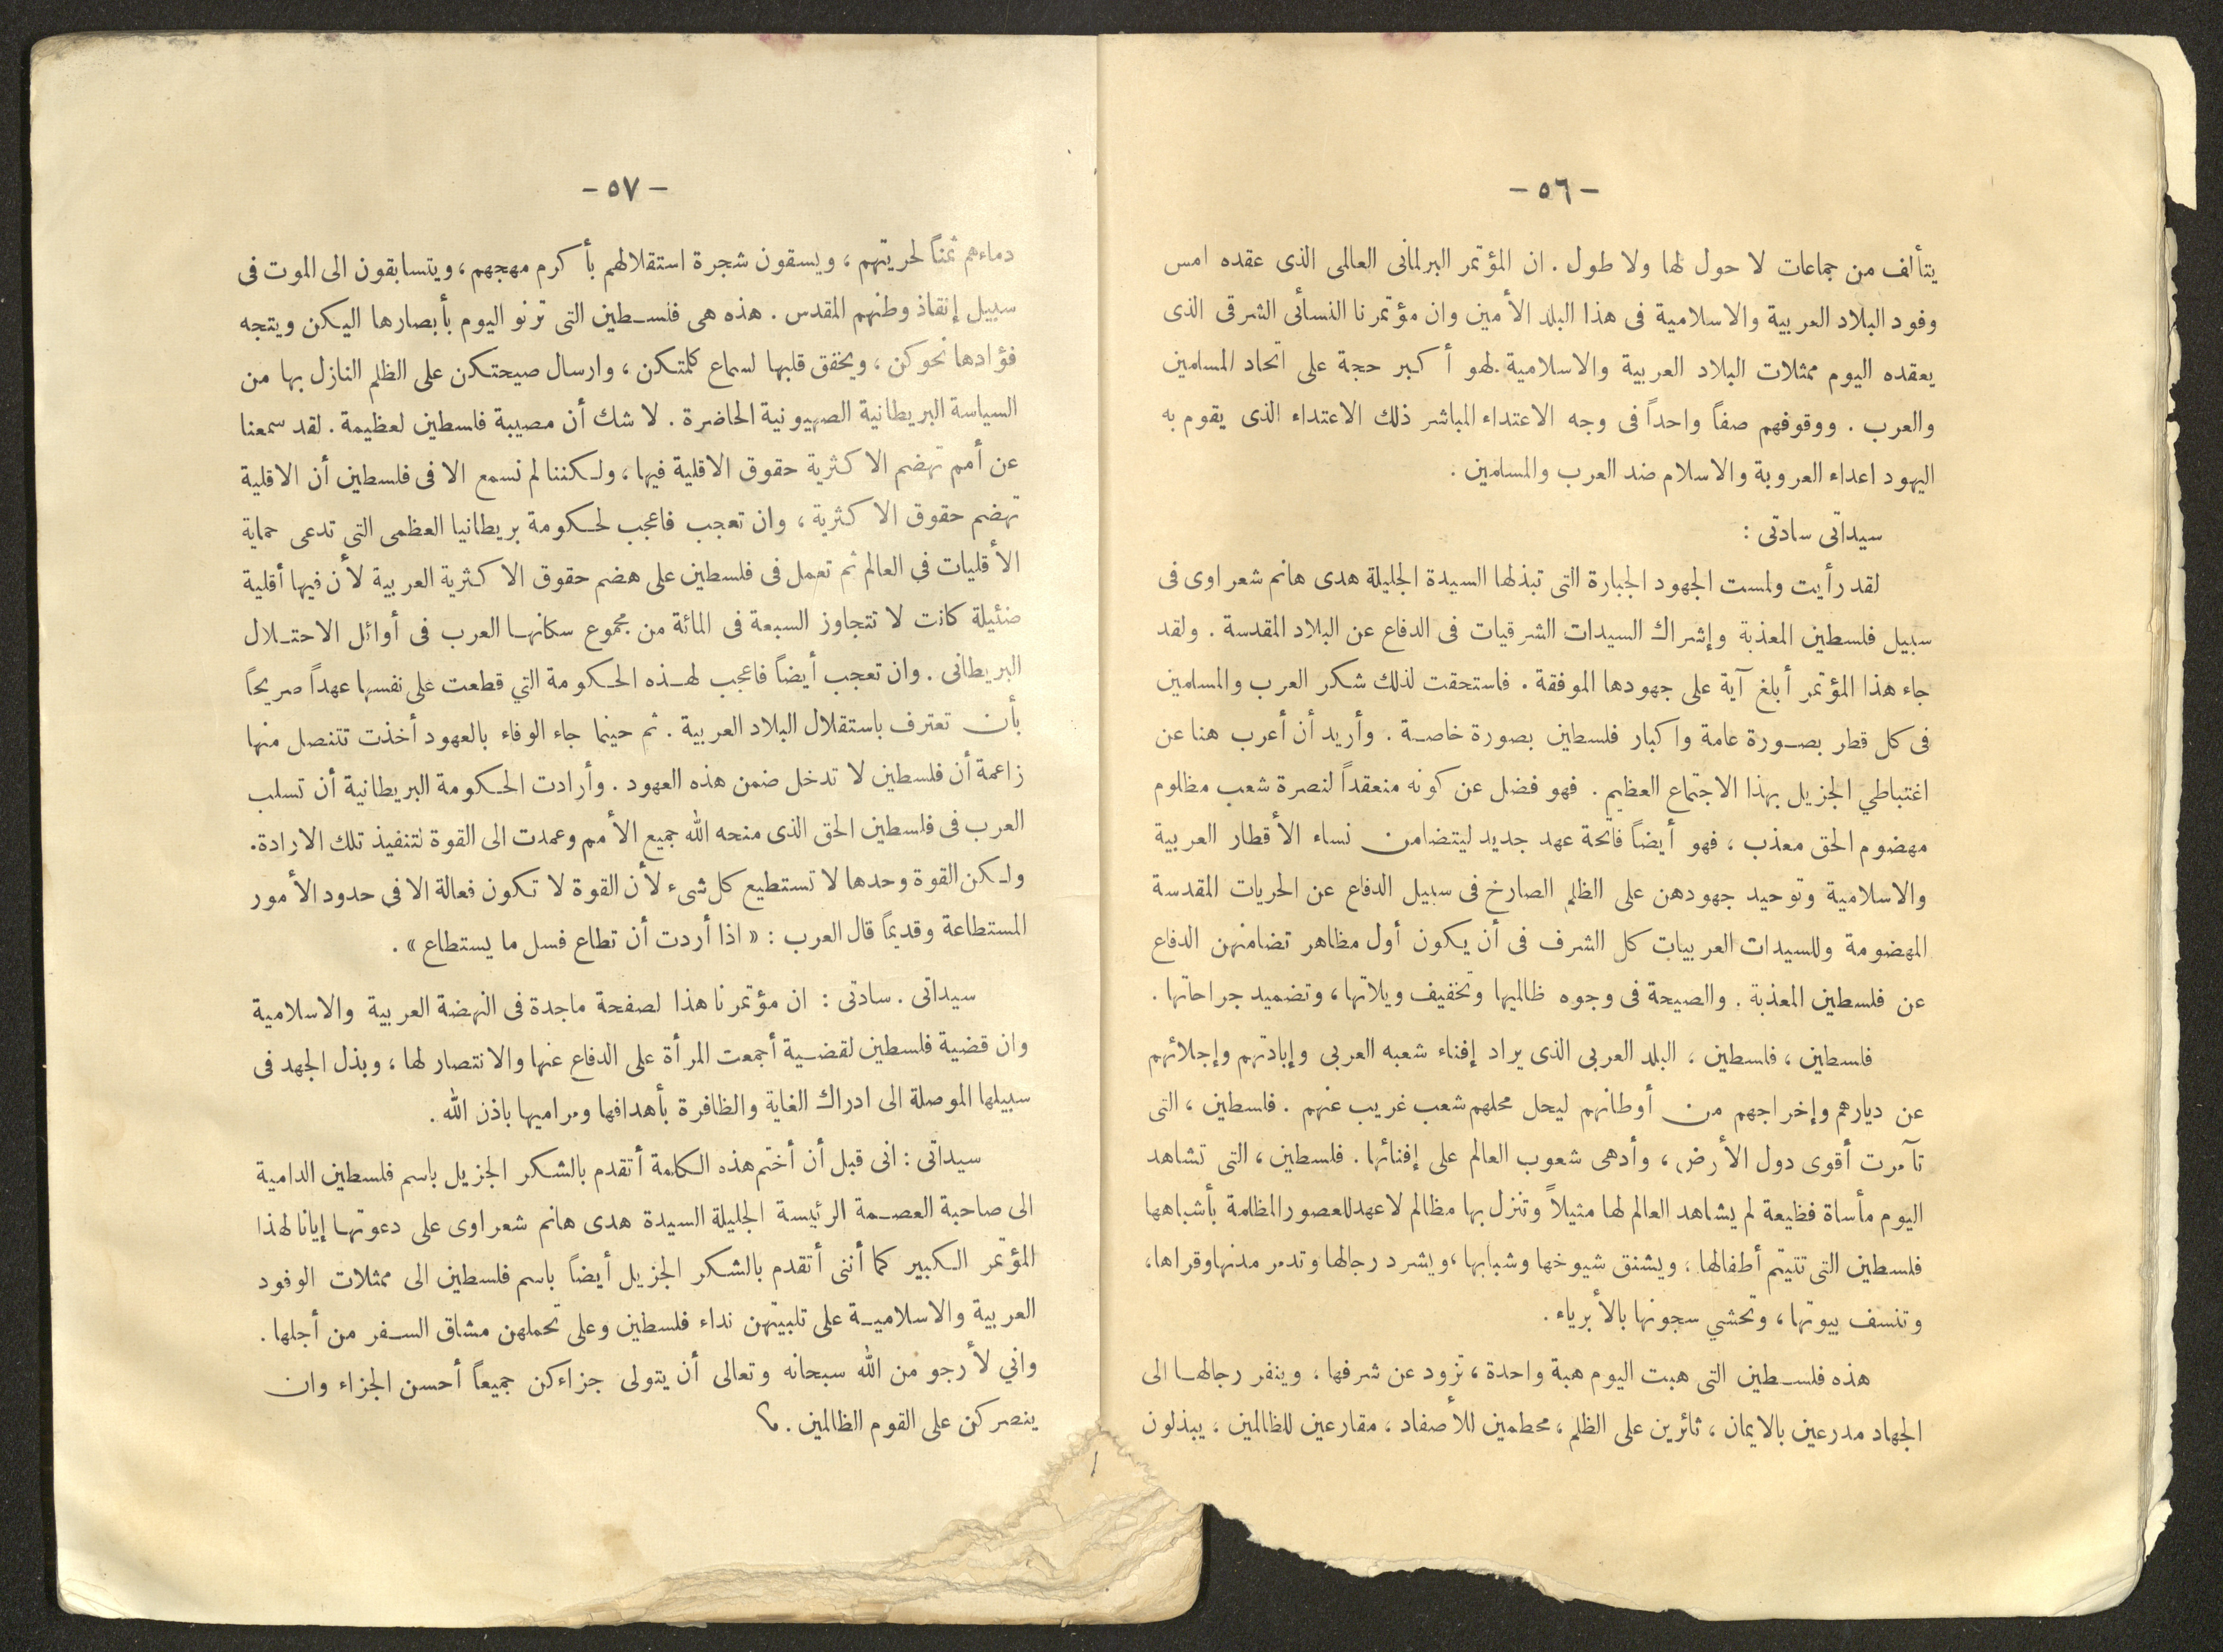 — ٥٦ —
يتألف من جماعات لا حول لها ولا طول . ان المؤتمر البرلمانى العالمى الذى عقده امس
وفود البلاد العربية والاسلامية فى هذا البلد الأمين وان مؤتمرنا النسائى الشرقى الذى
يعقده اليوم ممثلات البلاد العربية والاسلامية . لهو أكبر حجة على اتحاد المسلمين
والعرب . ووقوفهم صفاً واحداً فى وجه الاعتداء المباشر ذلك الاعتداء الذى يقوم به
اليهود اعداء العروبة والاسلام ضد العرب والمسلمين .
سيداتى سادتى :
لقد رأيت ولمست الجهود الجبارة التى تبذلها السيدة الجليلة هدى هانم شعراوى فى
سبيل فلسطين المعذبة وإشراك السيدات الشرقيات فى الدفاع عن البلاد المقدسة . ولقد
جاء هذا المؤتمر أبلغ آية على جهودها الموفقة . فاستحقت لذلك شكر العرب والمسلمين
فى كل قطر بصورة عامة واكبار فلسطين بصورة خاصة . وأريد أن أعرب هنا عن
اغتباطي الجزيل بهذا الاجتماع العظيم . فهو فضل عن كونه منعقداً لنصرة شعب مظلوم
مهضوم الحق معذب ، فهو أيضاً فاتحة عهد جديد ليتضامن نساء الأقطار العربية
والاسلامية وتوحيد جهودهن على الظلم الصارخ فى سبيل الدفاع عن الحريات المقدسة
المهضومة وللسيدات العربيات كل الشرف فى أن يكون أول مظاهر تضامنهن الدفاع
عن فلسطين المعذبة . والصيحة فى وجوه ظالميها وتخفيف ويلاتها ، وتضميد جراحاتها .
فلسطين ، فلسطين ، البلد العربى الذى يراد إفناء شعبه العربى وإبادتهم وإجلائهم
عن ديارهم وإخراجهم من أوطانهم ليحل محلهم شعب غريب عنهم . فلسطين ، التى
تآمرت أقوى دول الأرض ، وأدهى شعوب العالم على إفنائها . فلسطين ، التى تشاهد
اليوم مأساة فظيعة لم يشاهد العالم لها مثيلاً وتنزل بها مظالم لا عهد للعصور المظلمة بأشباهها
فلسطين التى تتيتم أطفالها ، ويشنق شيوخها وشبابها ، ويشرد رجالها وتدمر مدنها وقراها ،
وتنسف بيوتها ، وتحشي سجونها بالأبرياء .
هذه فلسطين التى هبت اليوم هبة واحدة ، تزود عن شرفها ، وينفر رجالها الى
الجهاد مدرعين بالايمان ، ثائرين على الظلم ، محطمين للأصفاد ، مقارعين للظالمين ، يبذلون
— ٥٧ —
دماءهم ثمناً لحريتهم ، ويسقون شجرة استقلالهم بأكرم مهجهم ، ويتسابقون الى الموت فى
سبيل إنقاذ وطنهم المقدس . هذه هى فلسطين التى ترنو اليوم بأبصارها اليكن ويتجه
فؤادها نحوكن ، ويخفق قلبها لسماع كلمتكن ، وارسال صيحتكن على الظلم النازل بها من
السياسة البريطانية الصهيونية الحاضرة . لا شك أن مصيبة فلسطين لعظيمة . لقد سمعنا
عن أمم تهضم الاكثرية حقوق الاقلية فيها ، ولكننا لم نسمع الا فى فلسطين أن الاقلية
تهضم حقوق الاكثرية ، وان تعجب فاعجب لحكومة بريطانيا العظمى التى تدعى حماية
الأقليات في العالم ثم تعمل فى فلسطين على هضم حقوق الاكثرية العربية لأن فيها أقلية
ضئيلة كانت لا تتجاوز السبعة فى المائة من مجموع سكانها العرب فى أوائل الاحتلال
البريطانى . وان تعجب أيضاً فاعجب لهذه الحكومة التي قطعت على نفسها عهداً صريحاً
بأن تعترف باستقلال البلاد العربية . ثم حينما جاء الوفاء بالعهود أخذت تتنصل منها
زاعمة أن فلسطين لا تدخل ضمن هذه العهود . وأرادت الحكومة البريطانية أن تسلب
العرب فى فلسطين الحق الذى منحه الله جميع الأمم وعمدت الى القوة لتنفيذ تلك الارادة.
ولكن القوة وحدها لا تستطيع كل شىء لأن القوة لا تكون فعالة الا في حدود الأمور
المستطاعة وقديماً قال العرب : « اذا أردت أن تطاع فسل ما يستطاع » .
سيداتى . سادتى : ان مؤتمرنا هذا لصفحة ماجدة فى النهضة العربية والاسلامية
وان قضية فلسطين لقضية أجمعت المرأة على الدفاع عنها والانتصار لها ، وبذل الجهد فى
سبيلها الموصلة الى ادراك الغاية والظافرة بأهدافها ومراميها باذن الله .
سيداتى : انى قبل أن أختم هذه الكلمة أتقدم بالشكر الجزيل باسم فلسطين الدامية
الى صاحبة العصمة الرئيسة الجليلة السيدة هدى هانم شعراوى على دعوتها إيانا لهذا
المؤتمر الكبير كما أننى أتقدم بالشكر الجزيل أيضاً باسم فلسطين الى ممثلات الوفود
العربية والاسلامية على تلبيتهن نداء فلسطين وعلى تحملهن مشاق السفر من أجلها .
واني لأرجو من الله سبحانه وتعالى أن يتولى جزاءكن جميعاً أحسن الجزاء وان
ينصركن على القوم الظالمين .